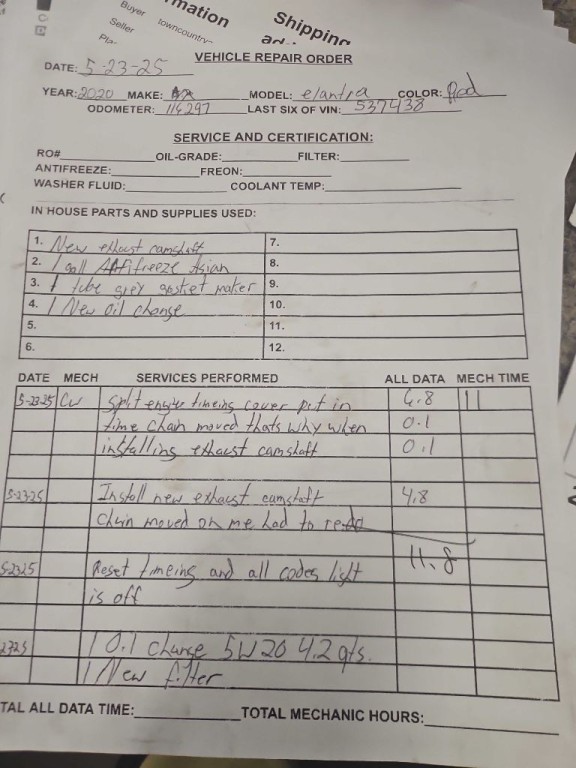 Buyer
Seller
Pla
towncountry
mation
Shipping
VEHICLE REPAIR ORDER
DATE: 5-23-25
YEAR: 2020 MAKE: MODEL: elantra COLOR: Red
ODOMETER: 116297 LAST SIX OF VIN: 537438
SERVICE AND CERTIFICATION:
RO# OIL-GRADE: FILTER:
ANTIFREEZE: FREON:
WASHER FLUID: COOLANT TEMP:
IN HOUSE PARTS AND SUPPLIES USED:
1. New exhaust camshaft 7.
2. 1 gall Antifreeze Asian 8.
3. 1 tube grey gasket maker 9.
4. 1 New oil change 10.
5. 11.
6. 12.
DATE MECH SERVICES PERFORMED ALL DATA MECH TIME
5-23-25 Cw Split engine timeing cover put in 6.8 11
time chain moved thats why when 0.1
installing exhaust camshaft 0.1
5-23-25 Install new exhaust camshaft 4.8
Chain moved on me had to redo
11.8
52325 Reset timeing and all codes light
is off
2325 1 Oil change 5W20 4.2 qts.
1 New filter
TAL ALL DATA TIME: TOTAL MECHANIC HOURS: